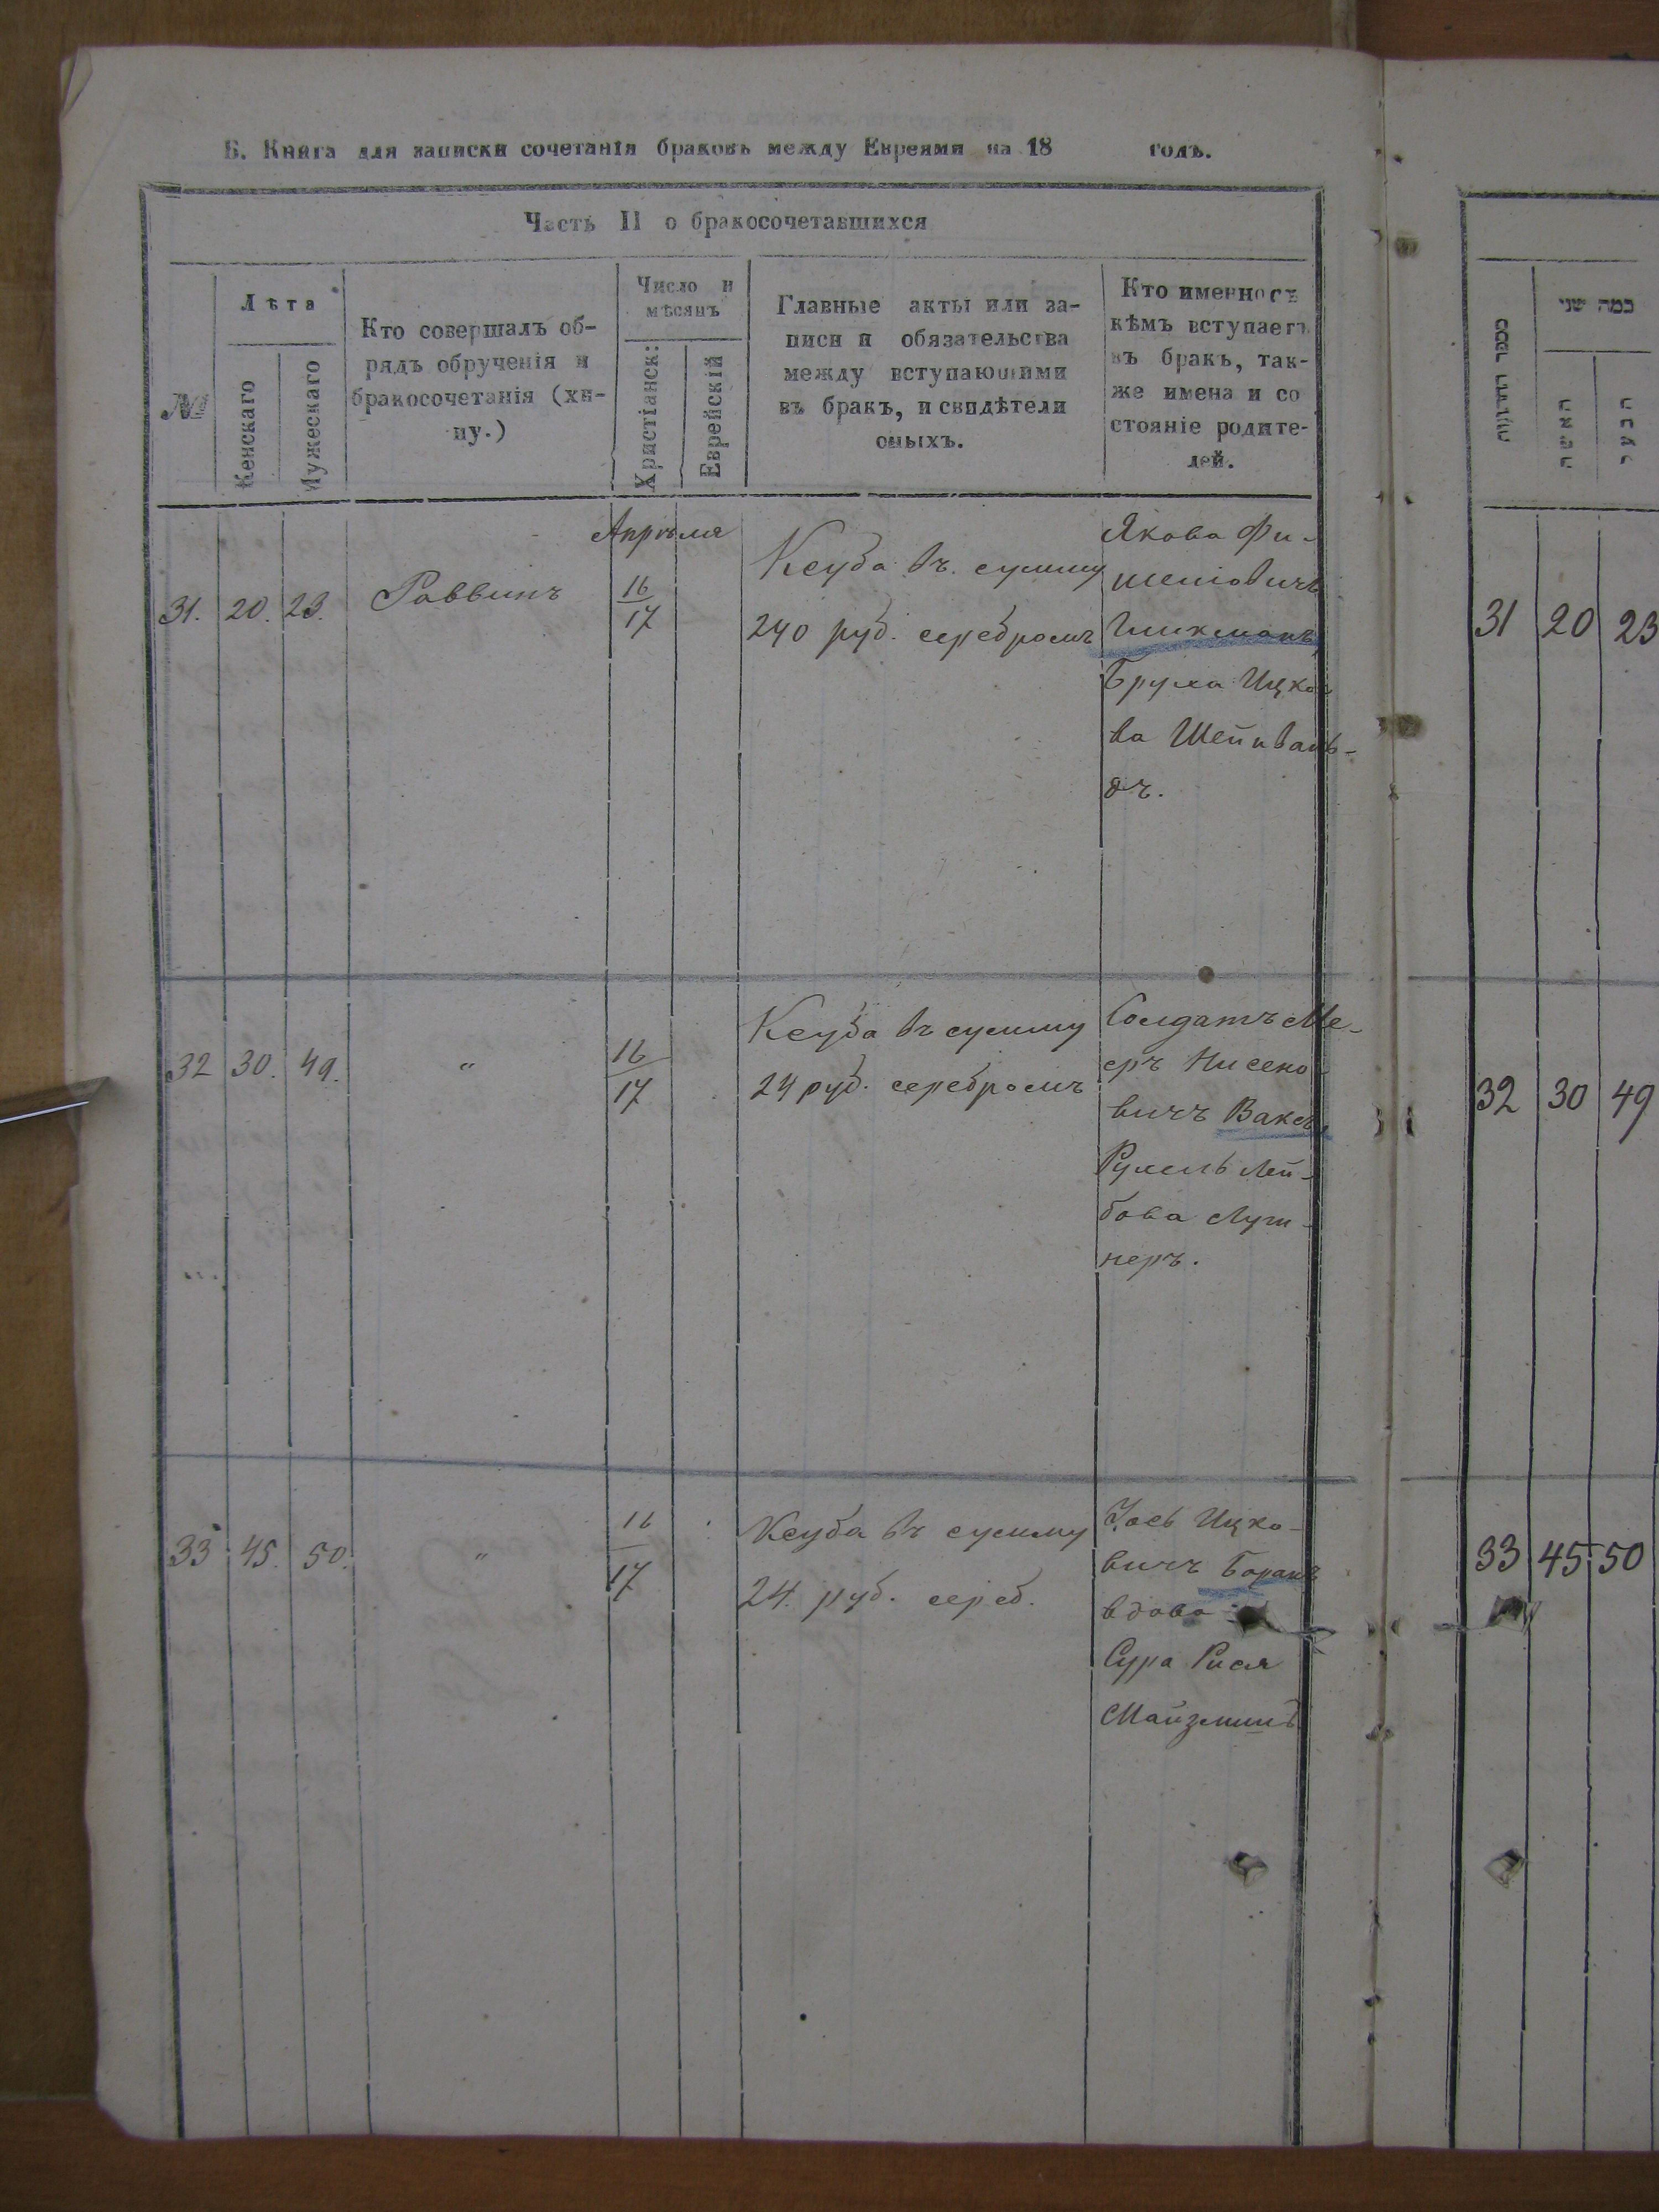 Б. Книга для записки сочетанія браковъ между Евреями на 18 годъ.
Часть II о бракосочетавшихся
№
Лѣта
Женскаго
Мужескаго
Кто совершалъ об-
рядъ обрученія и
бракосочетанія (хи-
пу.)
Число и
мѣсяцъ
Христіанск:
Еврейскій
Главные акты или за-
писи и обязательства
между вступающими
въ бракъ, и свидѣтели
оныхъ.
Кто именно съ
кѣмъ вступаетъ
въ бракъ, так-
же имена и со
стояніе родите-
лей.
31. 20. 23. Раввинъ
Апрѣля
16
17
Ксуба въ сумму
240 руб. серебромъ
Якова Фи-
шеліовичъ
Гликманъ
Бруха Ицко
ва Шейнваль-
дъ.
32 30. 49. "
16
17
Ксуба въ сумму
24 руб. серебромъ
Солдатъ Ме-
еръ Нисено
вичъ Вакс
Рухель Лей-
бова
неръ.
33 45. 50. "
16
17
Ксуба въ сумму
24. руб. сереб.
Іось Ицко-
вичъ Баранъ
вдова
Сура Рися
מספר החתונות
כמה שני
האשה
הבעל
31 20 23
32 30 49
33 45 50